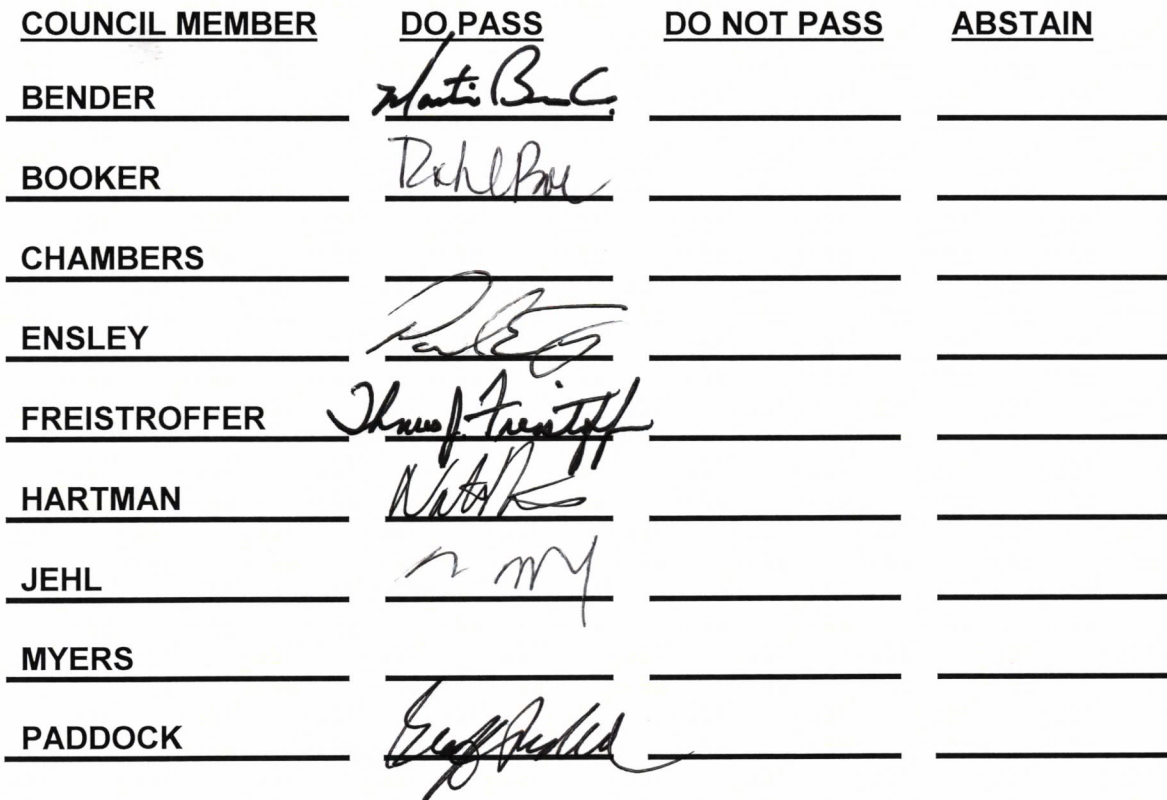 COUNCIL MEMBER DO PASS DO NOT PASS ABSTAIN
BENDER Martin Ben C.
BOOKER
CHAMBERS
ENSLEY Paul E
FREISTROFFER Thomas J. Freistroffer
HARTMAN
JEHL
MYERS
PADDOCK Geoff Paddock